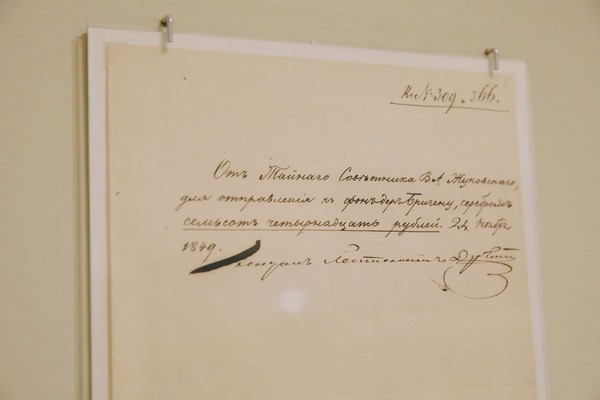 К № 309 и 366.
Отъ Тайнаго Совѣтника В. А. Жуковскаго,
для отправленія къ фонъ-деръ-Бригену, серебромъ
семьсотъ четырнадцать рублей. 22 Ноября
1849.